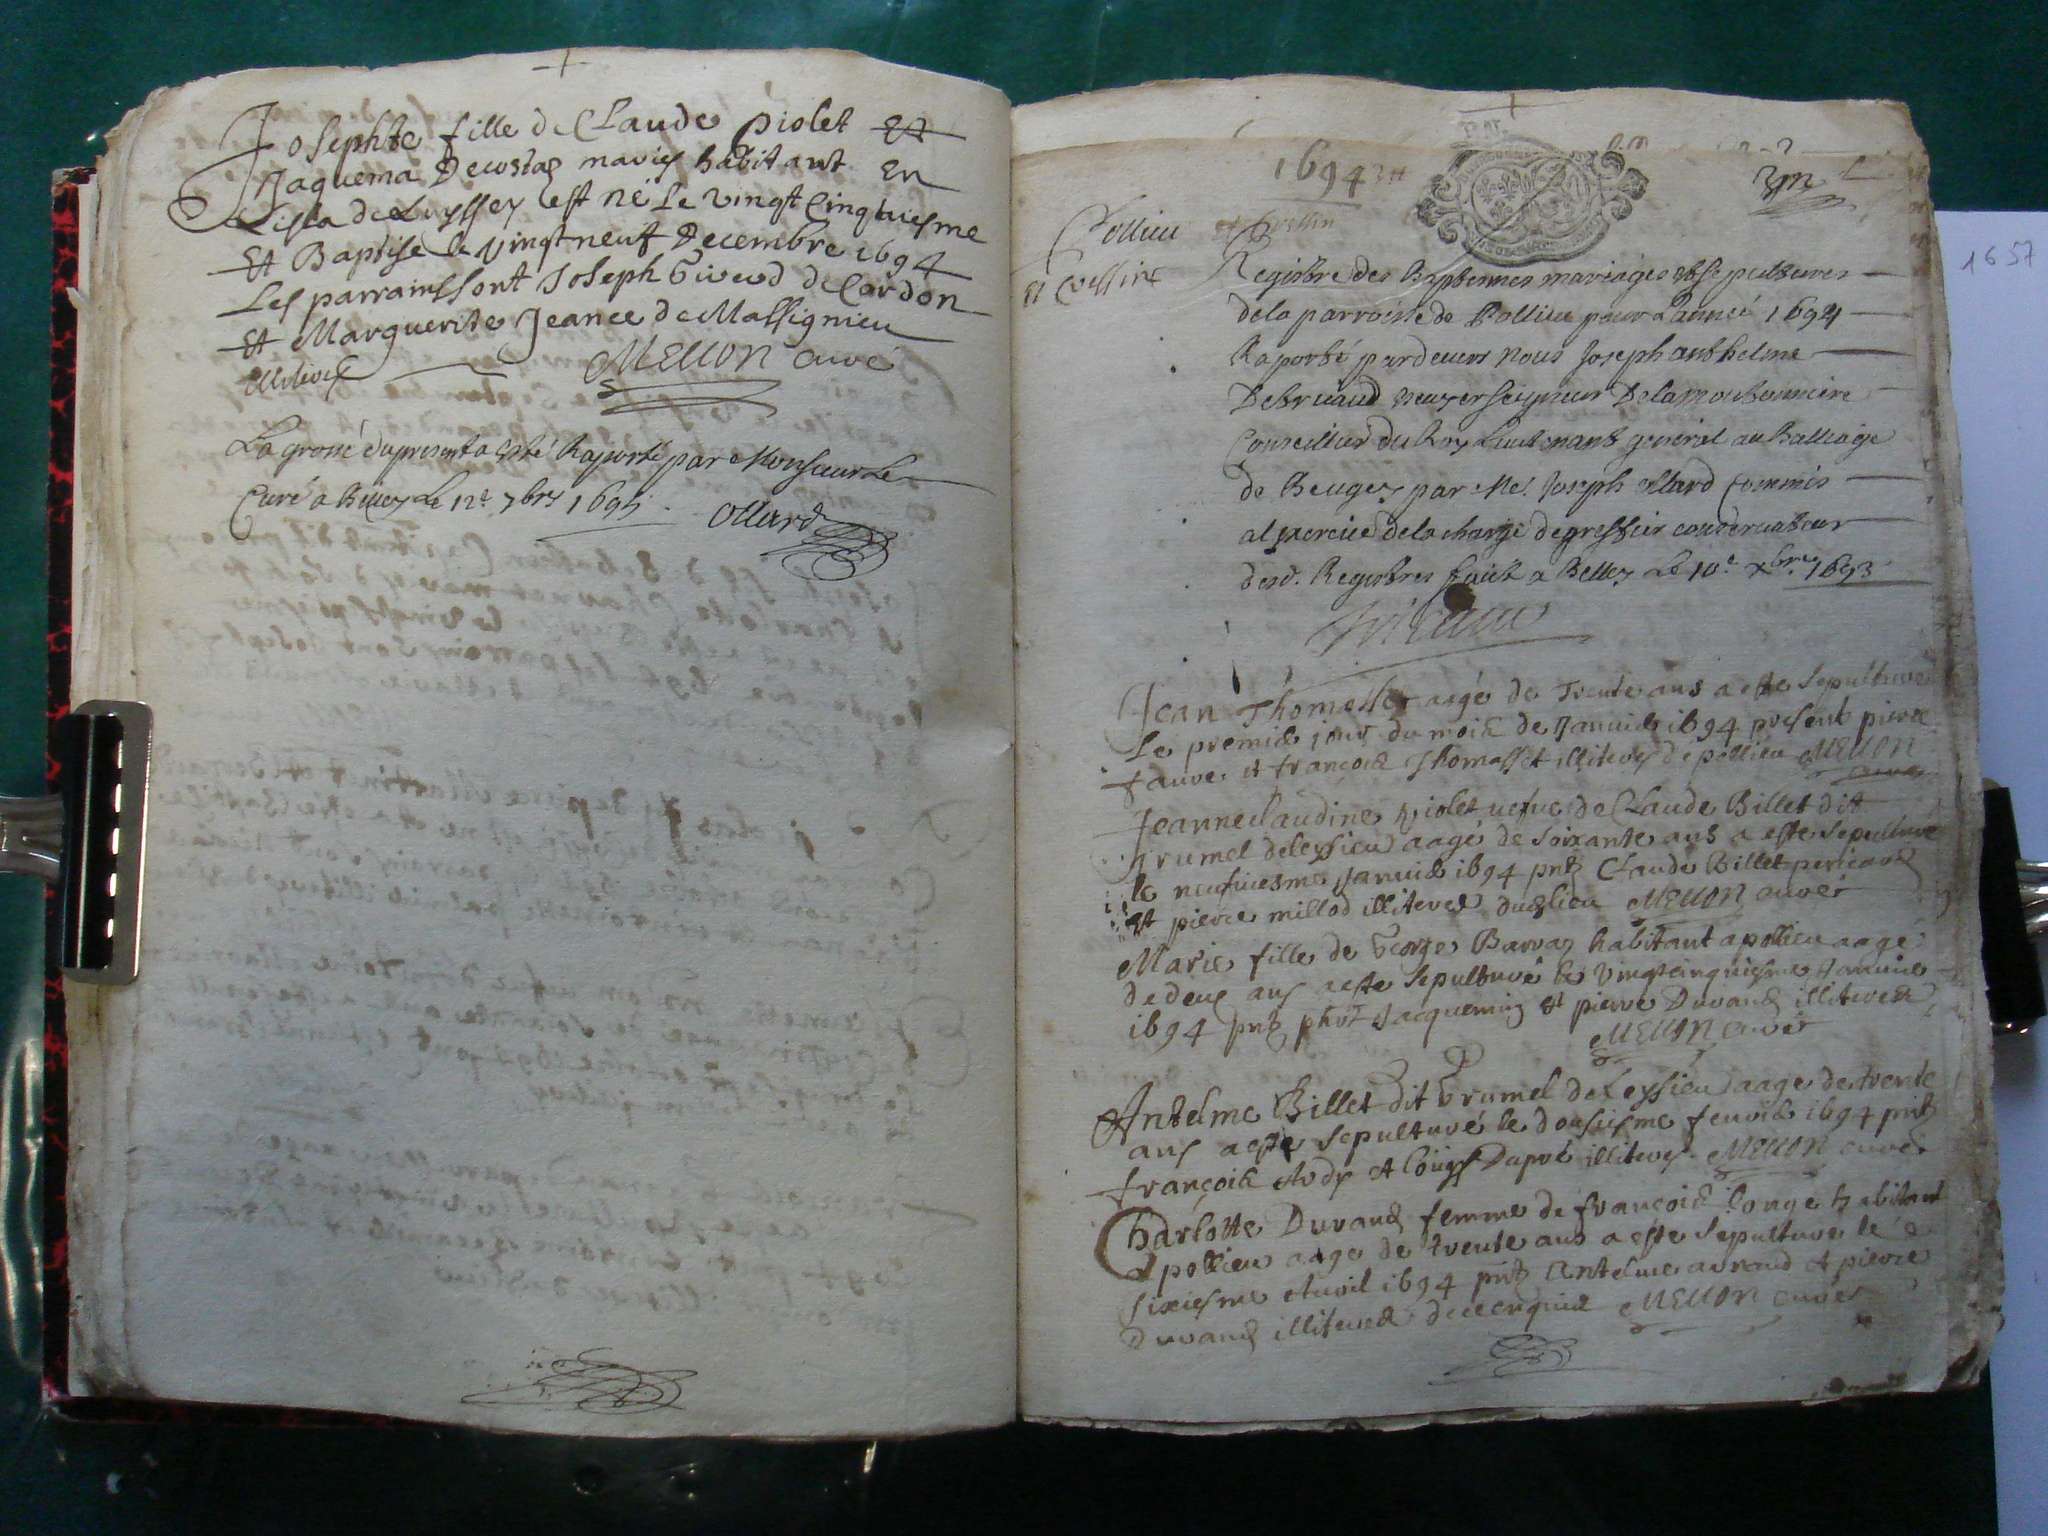 Josephte fille de Claude piolet Et
Jaquema Decostaz mariez habitant En
Lisla de Luyssey est né le vingt Cinquiesme
Et Baptise le vingt neuf Decembre 1694
Les parrains sont Joseph Girerd de Cordon
Et Marguerite Jeance de Massignieu
illiterés MEUON curé
La grosse du present a esté Raporté par Monsieur Le
Curé a Belley Le 12e 7bre 1695
Ollard
1694
Pollieu
et Cressin
Registre des Baptesmes mariages et sepultures
de la parroisse de Pollieu pour L'anneé 1694
Raporté pardevers Nous Joseph anthelme
seigneur
Conseiller du Roy Lieutenant general au Balliage
de Beugey par Me. Joseph ollard Commis
al exercice de la charge de greffier conservateur
desd. Registres faict a Belley Le 10e xbre 1693
Jean Thomasset aagé de Trente ans a esté sepulturé
Le premier jour du mois de Janvier 1694 present pierre
faure et françois Thomasset illiterés de pollieu MEUON
curé
Jeanneclaudine piolet uefue de Claude Billet dit
grumel deleyssieu aagé de soixante ans a esté sepulturé
le neufuiesme Januier 1694 pntz Claude Billet
Et pierre millod illiterés dud lieu MEUON curé
Marie fille de George Barraz habitant a pollieu aagé
de deux ans a esté sepulturé le vingtcinquiesme Januier
1694 pntz phot Jacquemin et pierre Durand illiterés
MEUON curé
Antelme Billet dit Grumel de Leyssieu aagé de trente
ans a esté sepulturé le dousiesme feurier 1694 pntz
françois et Dupré illiterés MEUON curé
Charlotte Durand femme de françois longe habitant
a pollieu aagé de trente ans a esté sepulturé le
sixiesme Auril 1694 pntz Antelme et pierre
Durand illiterés MEUON curé
1657